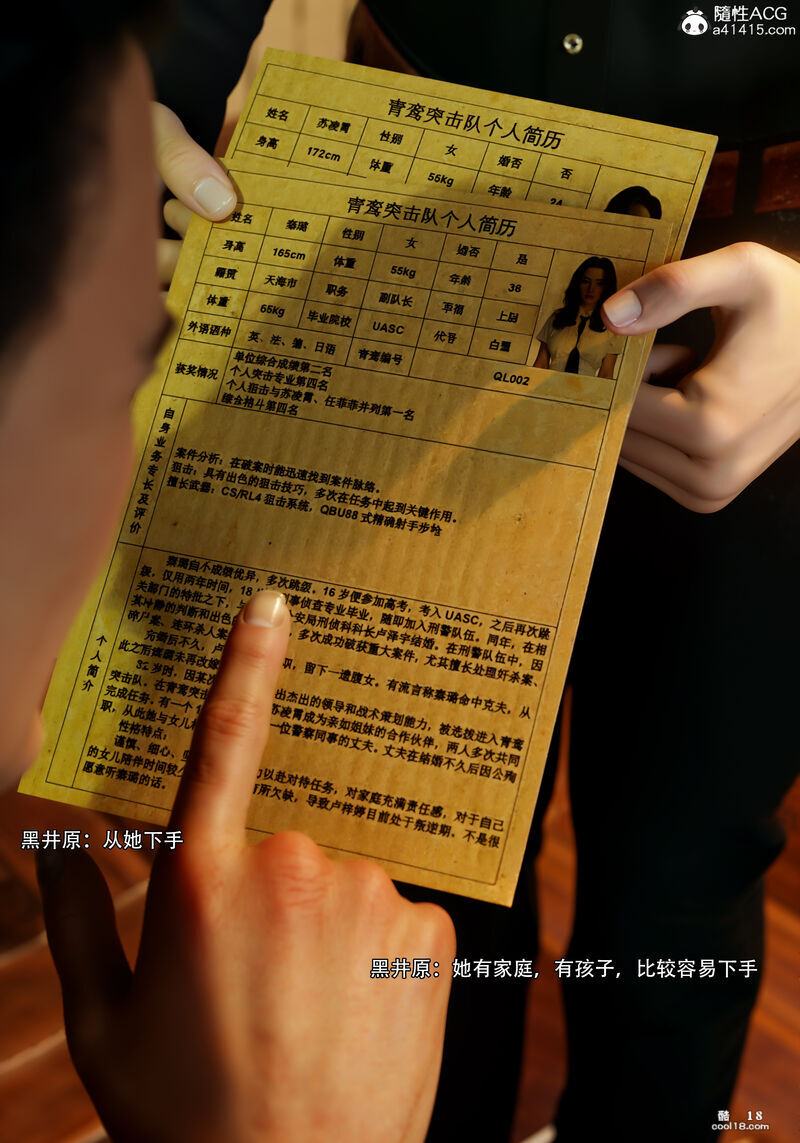 隨性ACG
a41415.com
青鸾突击队个人简历
姓名 苏凌霄 性别 女 婚否 否
身高 172cm 体重 55Kg 年龄 24
青鸾突击队个人简历
姓名 蔡璐 性别 女 婚否 是
身高 165cm 体重 55kg 年龄 38
籍贯 天海市 职务 副队长
体重 65Kg 毕业院校 UASC 代号
外语语种 英、法、德、日语 青鸾编号 QL002
获奖情况 单位综合成绩第二名
个人突击专业第四名
个人狙击与苏凌霄、任菲菲并列第一名
综合格斗第四名
自身业务专长及评价
案件分析：在破案时能迅速找到案件脉络。
狙击：具有出色的狙击技巧，多次在任务中起到关键作用。
擅长武器：CS/RL4 狙击系统，QBU88 式精确射手步枪
个人简介
蔡璐自小成绩优异，多次跳级。16 岁便参加高考，考入 UASC，之后再次跳
级，仅用两年时间，18 事侦查专业毕业，随即加入刑警队伍。同年，在相
关部门的特批之下，与 安局刑侦科科长卢泽宇结婚。在刑警队伍中，因
其冷静的判断和出色的 ，多次成功破获重大案件，尤其擅长处理奸杀案、
碎尸案、连环杀人案
完婚后不久，卢 职，留下一遗腹女。有流言称蔡璐命中克夫，从
此之后蔡璐未再改嫁
岁时，因某次 出杰出的领导和战术策划能力，被选拔进入青鸾
突击队。在青鸾突击 苏凌霄成为亲如姐妹的合作伙伴，两人多次共同
完成任务。有一个 一位警察同事的丈夫。丈夫在结婚不久后因公殉
职，从此她与女儿
性格特点：
谨慎、细心、 以赴对待任务，对家庭充满责任感，对于自己
的女儿陪伴时间较 有所欠缺，导致卢梓婷目前处于叛逆期、不是很
愿意听蔡璐的话。
黑井原：从她下手
黑井原：她有家庭，有孩子，比较容易下手
酷 18
cool18.com